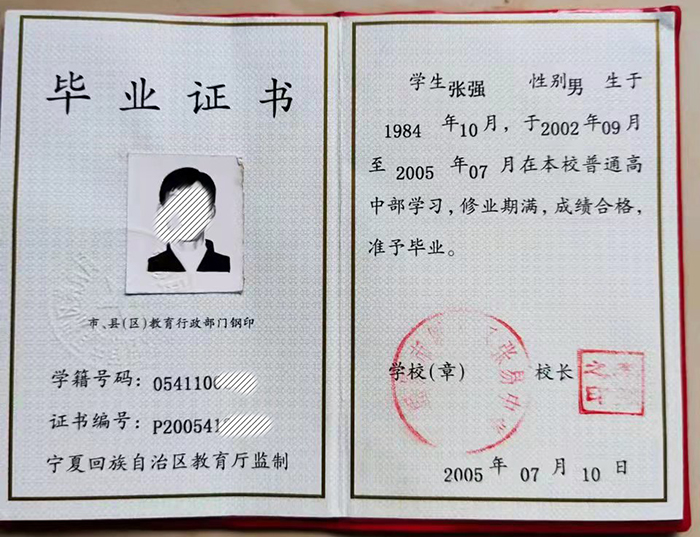 毕业证书
市、县(区)教育行政部门钢印
学籍号码：0541100
证书编号：P200541
宁夏回族自治区教育厅监制
学生张强 性别男 生于
1984 年10月，于2002年09月
至 2005 年07 月在本校普通高
中部学习，修业期满，成绩合格，
准予毕业。
张易中学
学校(章) 校长
之印
2005 年 07 月 10 日